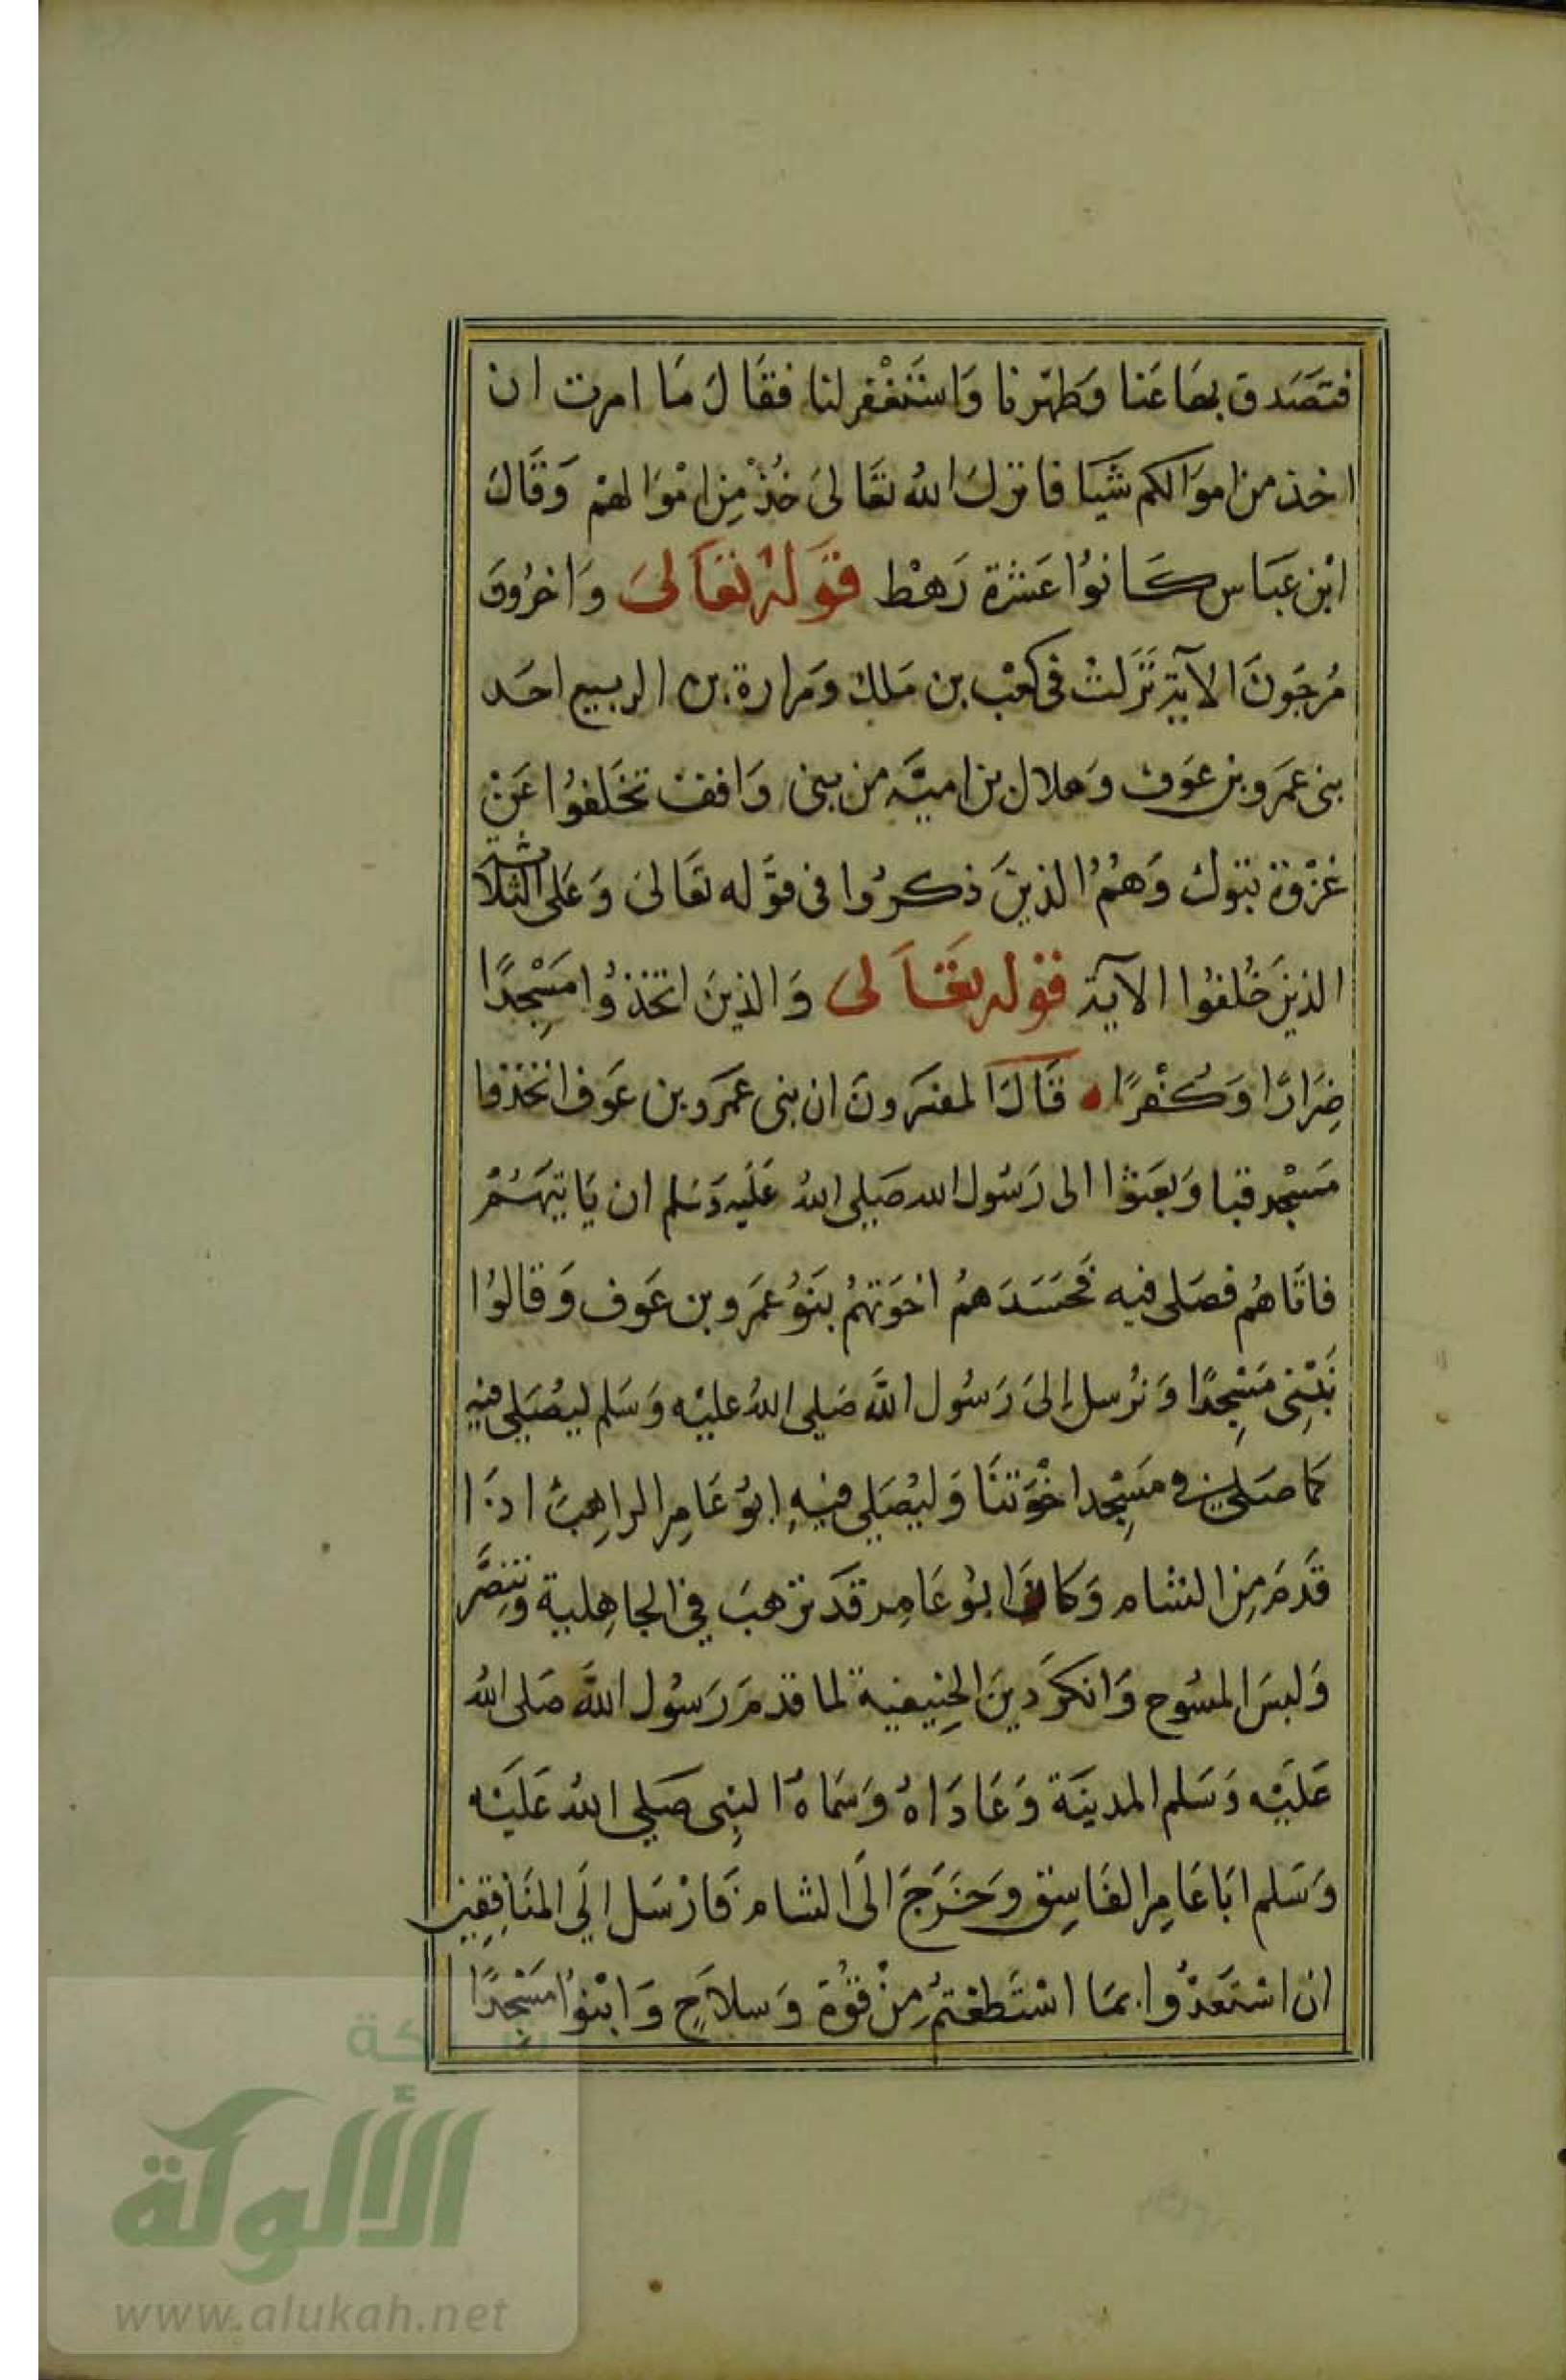 فتَصَدق بهَا عَنا وَطهّرنا وَاستَغْفر لنا فقَالَ مَا امرت ان
اخذ من اموَالكم شَيَا فانزلَ اللهُ تعَالىَ خُذْ مِن امْوَالهمْ وَقَالَ
ابْن عَبَاس كَانوُا عَشرة رَهْط قَولهُ تعَالىَ وَاخرُونَ
مُرجَونَ الآية نَزَلتْ فى كعْب بن مَلك وَمرارة بن الربيع احَد
بنى عمَرو بن عَوف وَهلال بن اميَّه من بنى وَاقف تخَلفوُا عَنْ
غزْوة تبوك وَهُمُ الذينَ ذكرُوا فى قوَله تعَالىَ وَعَلى الثلاثة
الذينَ خُلفوُا الآية قوله تعَالى وَالذينَ اتخذوُا مَسْجِدًا
ضِرَارًا وَكُفْرًا قَالَ المفسَرونَ ان بنى عمَرو بن عَوف اتخذوا
مَسْجد قبا وَبعَثوا الى رَسُول الله صَلى اللهُ عَليه وَسَلم ان يَاتيهَمُ
فاتَاهُم فصَلى فيه فحَسَدَهمُ اخوَتهُمُ بنَوُ عمَرو بن عَوف وَقالوُا
نَبْنِى مَسْجِدًا وَنرُسل إلىَ رَسُول اللَّه صَلى اللهُ عليْه وَسَلم ليُصَلى فيه
كما صَلى فى مَسْجِد اخْوَتنَا وَليُصَلى فيهِ ابوُ عَامِر الراهِبُ اذَا
قَدمَ مِن الشام وَكانَ ابوُ عَامِر قدَ ترَهبَ فِى الجاهِلية وَتنصَّر
وَلبسَ المسُوح وَانكرَ دِينَ الحِنيفية لما قدمَ رَسُول اللَّه صَلى اللهُ
عَليَه وَسَلم المدينَة وَعَادَاهُ وَسَمَاهُ النبِى صَلى اللهُ عَليَه
وَسَلم ابَا عَامِر الفَاسِق وَخَرَجَ الَى الشام فَارْسَل الَى المنَافِقِين
ان اسْتعَدوُا بمَا اسْتَطعْتمُ مِنْ قوُة وَسلاَحٍ وَابْنوُا مَسْجِدًا
شبكة
الألوكة
www.alukah.net